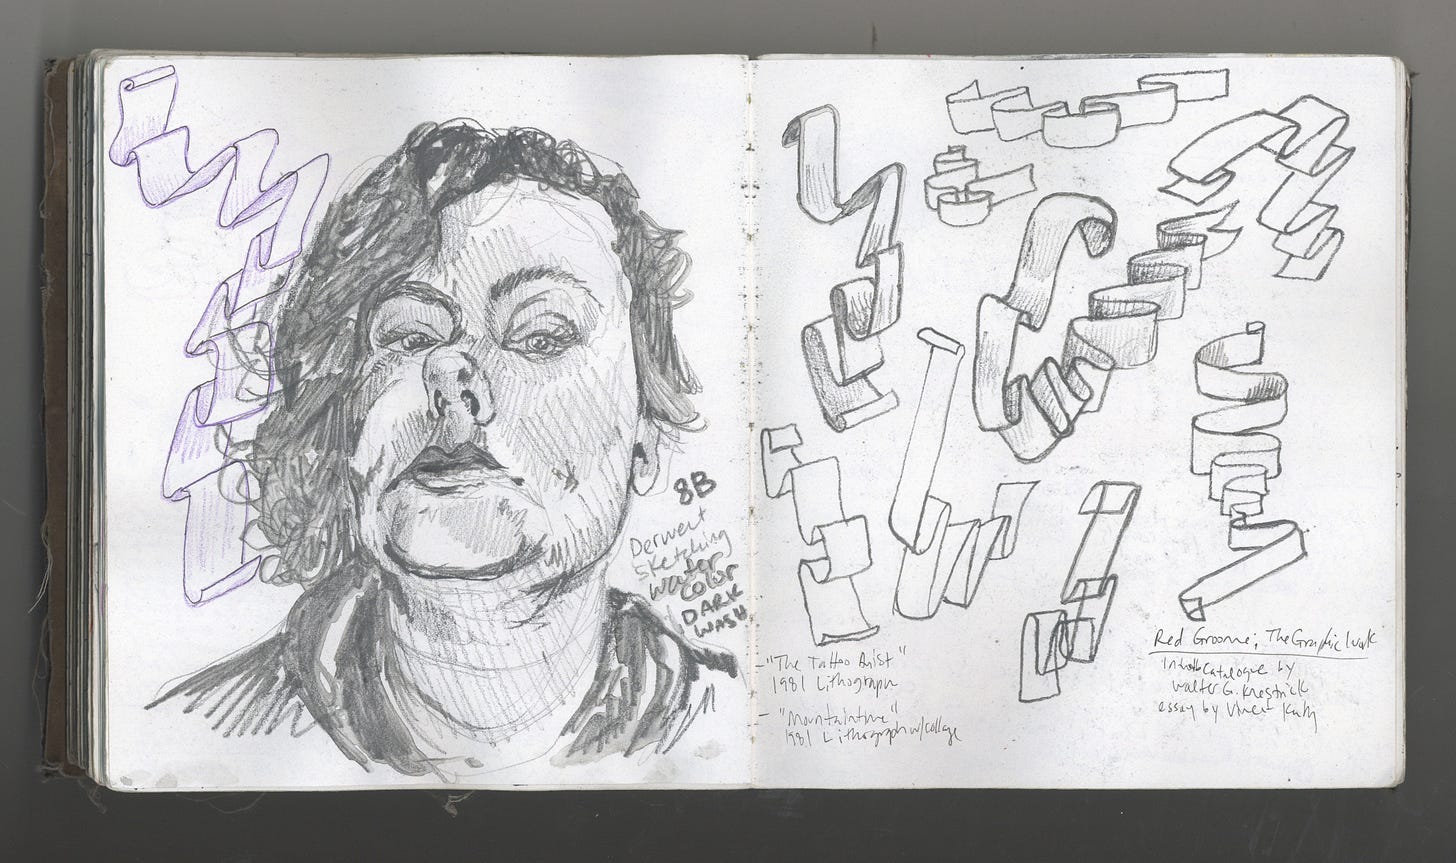 8B
Derwent
Sketching
Water
Color
DARK
WASH
- "The Tattoo Artist"
1981 Lithograph
- "Mountaintime"
1981 Lithograph w/collage
Red Grooms; The Graphic Work
Catalogue by
Walter G. Knestrick
essay by Vincent Katz